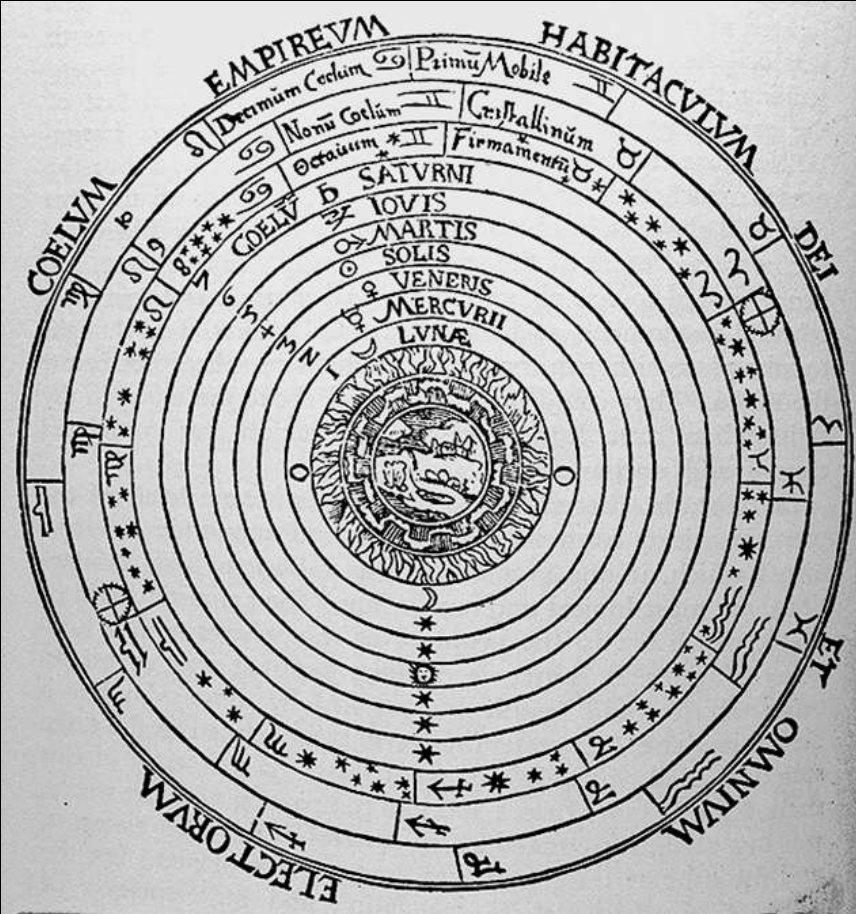 COELVM EMPIREVM HABITACVLVM DEI ET OMNIVM ELECTORVM
Decimum Coelum ♋ Primũ Mobile ♊
Nonũ Coelũm ♊ Cristallinũm ♉
Octauum ♊ Firmamentũ ♉
COELṼ ♄ SATVRNI
♃ IOVIS
♂ MARTIS
☉ SOLIS
♀ VENERIS
☿ MERCVRII
☽ LVNÆ
10
9
8
7
6
5
4
3
2
1